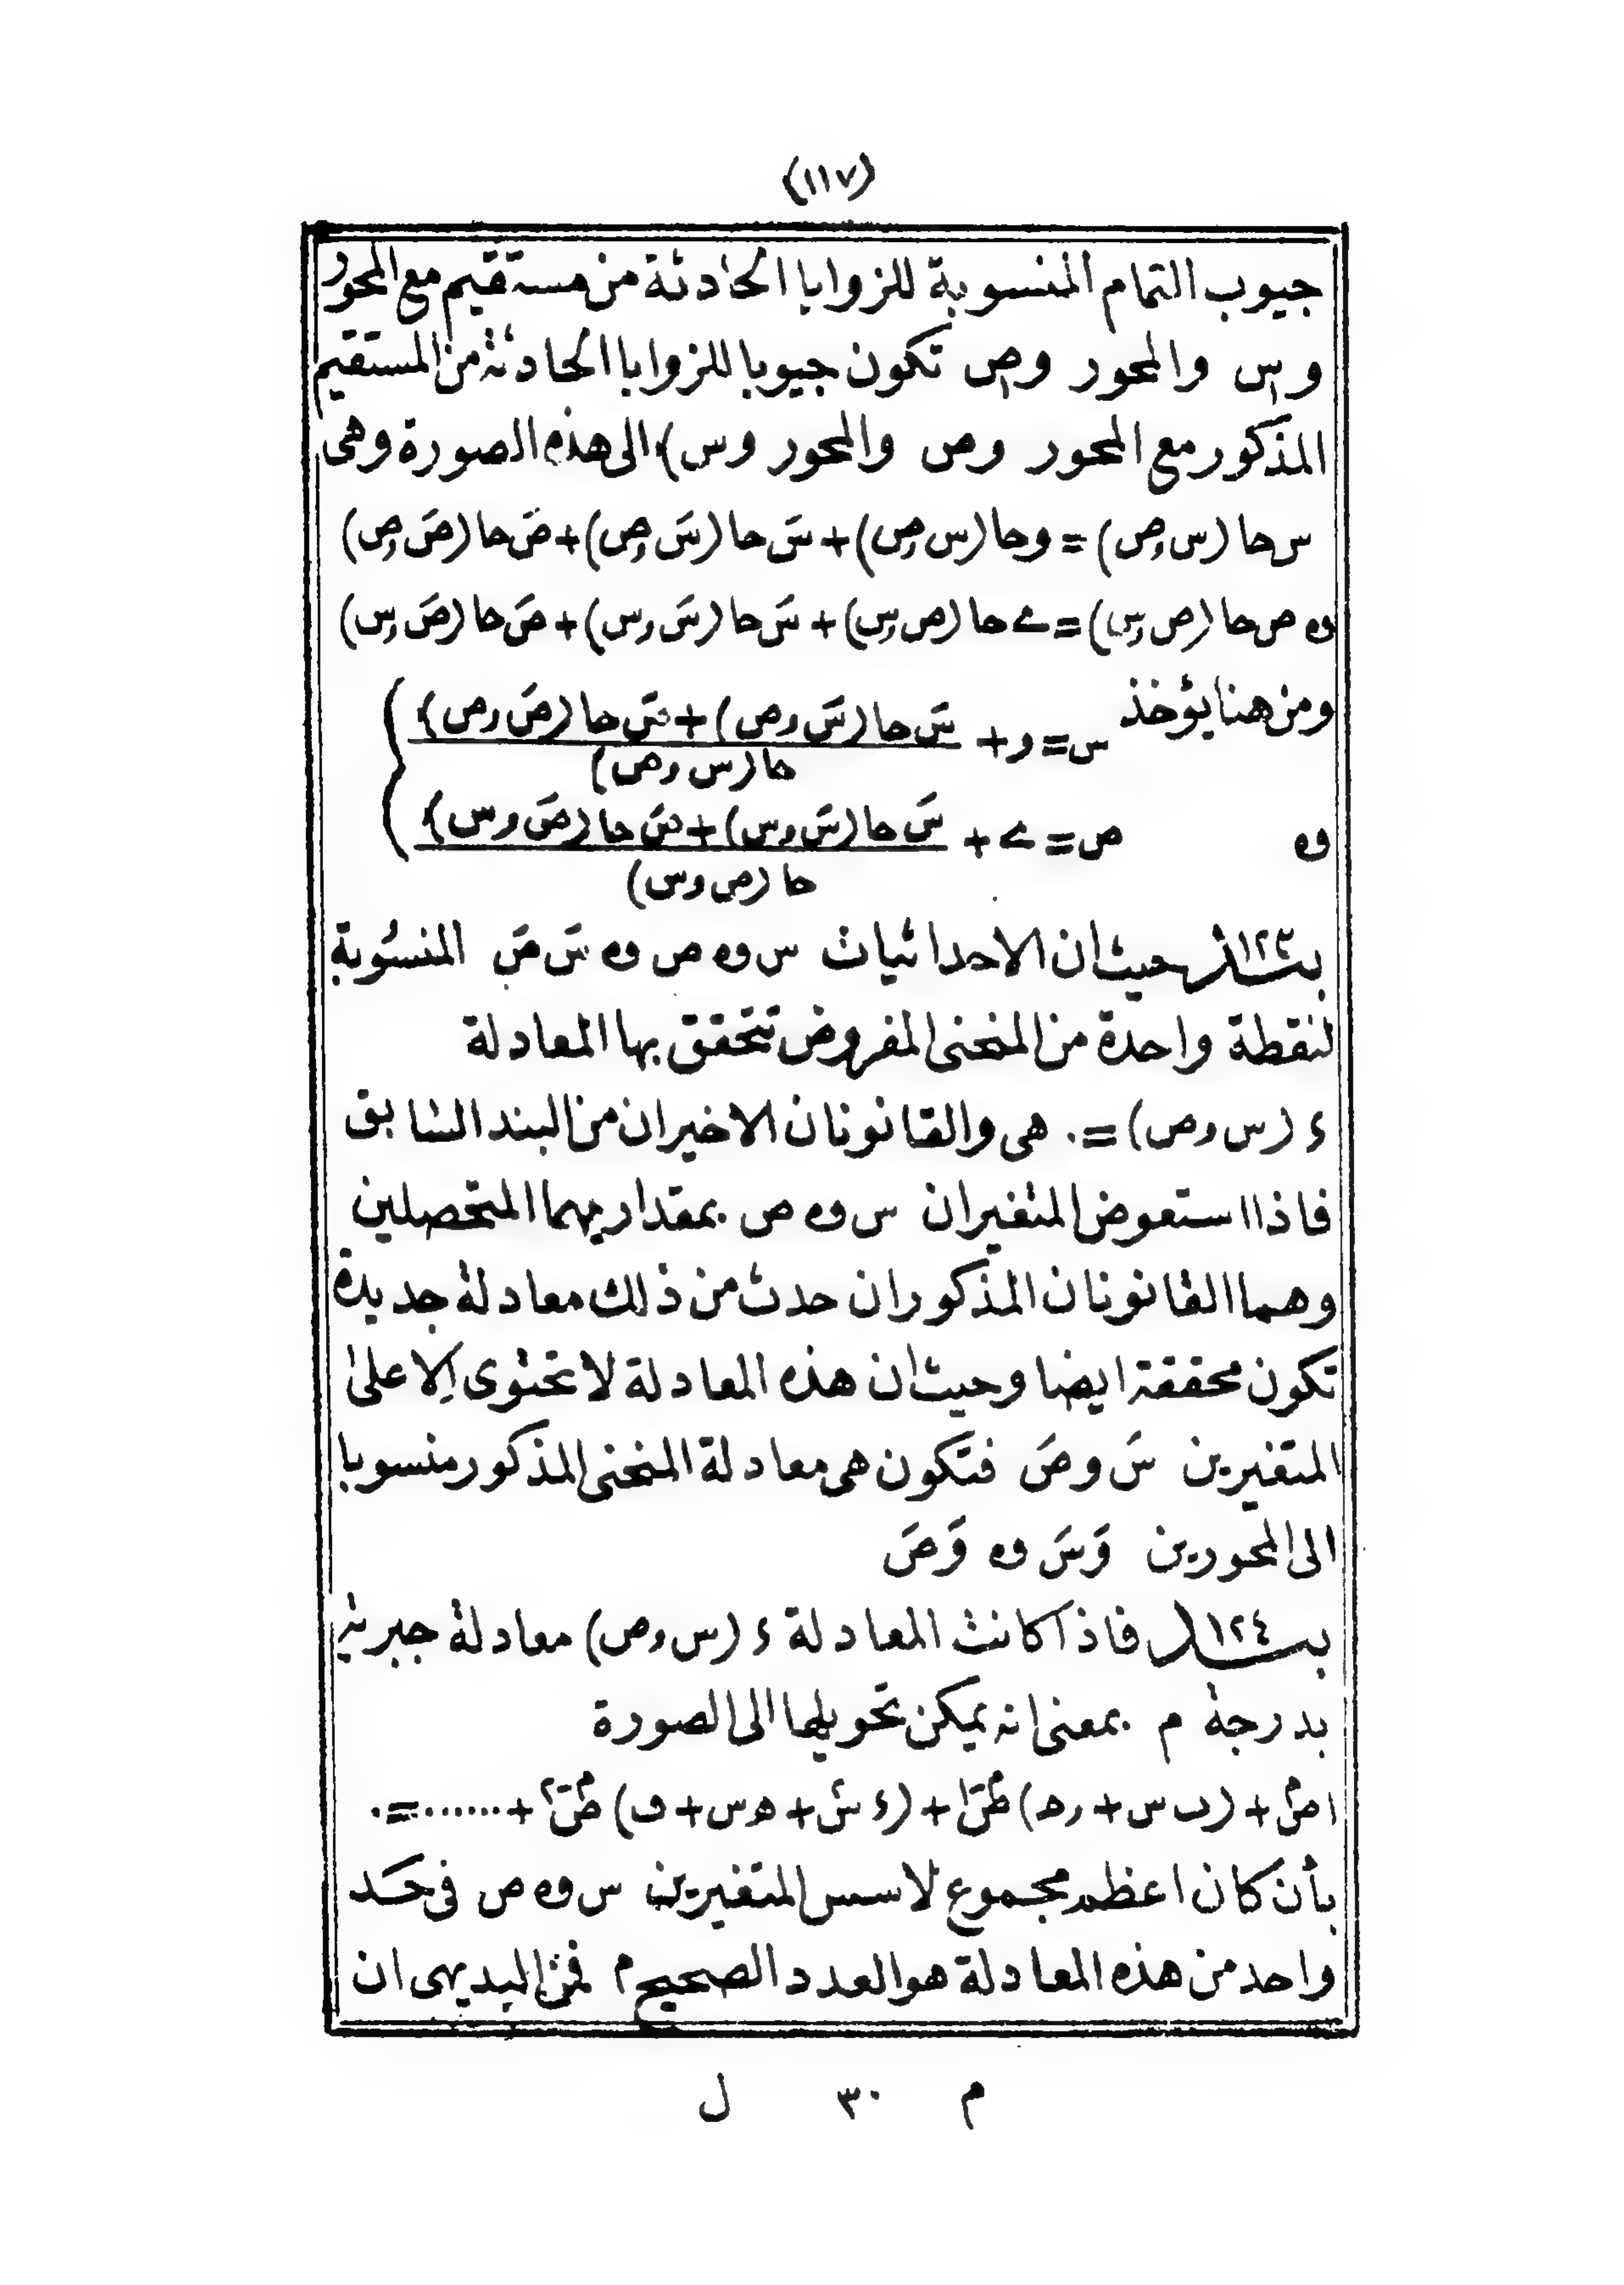 (١١٧)
جيوب التمام المنسوبة للزوايا الحادثة من مستقيم مع المحور
و س والمحور و ص تكون جيوبا للزوايا الحادثة من المستقيم
المذكور مع المحور و ص والمحور و س) الى هذه الصورة وهى
س حا (س و ص) = و حا (س و ص) + سَ حا (سَ و ص) + صَ حا (صَ و ص)
وه ص حا (ص و س) = ے حا (ص و س) + سَ حا (سَ و س) + صَ حا (صَ و س)
ومن هنا يؤخذ س = و + سَ حا (سَ و ص) + صَ حا (صَ و ص) / حا (س و ص)
وه ص = ے + سَ حا (سَ و س) + صَ حا (صَ و س) / حا (ص و س)
بند ١٢٣ حيث ان الاحداثيات س وه ص وه سَ صَ المنسوبة
لنقطة واحدة من المنحنى المفروض تتحقق بها المعادلة
ء (س و ص) = ٠ هى والقانونان الاخيران من البند السابق
فاذا استعوض المتغيران س وه ص بمقداريهما المتحصلين
وهما القانونان المذكوران حدث من ذلك معادلة جديدة
تكون محققة ايضا وحيث ان هذه المعادلة لا تحتوى الا على
المتغيرين سَ وصَ فتكون هى معادلة المنحنى المذكور منسوبا
الى المحورين وَسَ وه وَصَ
بند ١٢٤ فاذا كانت المعادلة ء (س و ص) معادلة جبرية
بدرجة م بمعنى انه يمكن تحويلها الى الصورة
ا ص^م + (ب س + حـ) ص^(م-١) + (ء س^٢ + ه س + ف) ص^(م-٢) + ...... = ٠
بأن كان اعظم مجموع لاسس المتغيرين س وه ص فى حد
واحد من هذه المعادلة هو العدد الصحيح م فمن البديهى ان
م ٣٠ ل